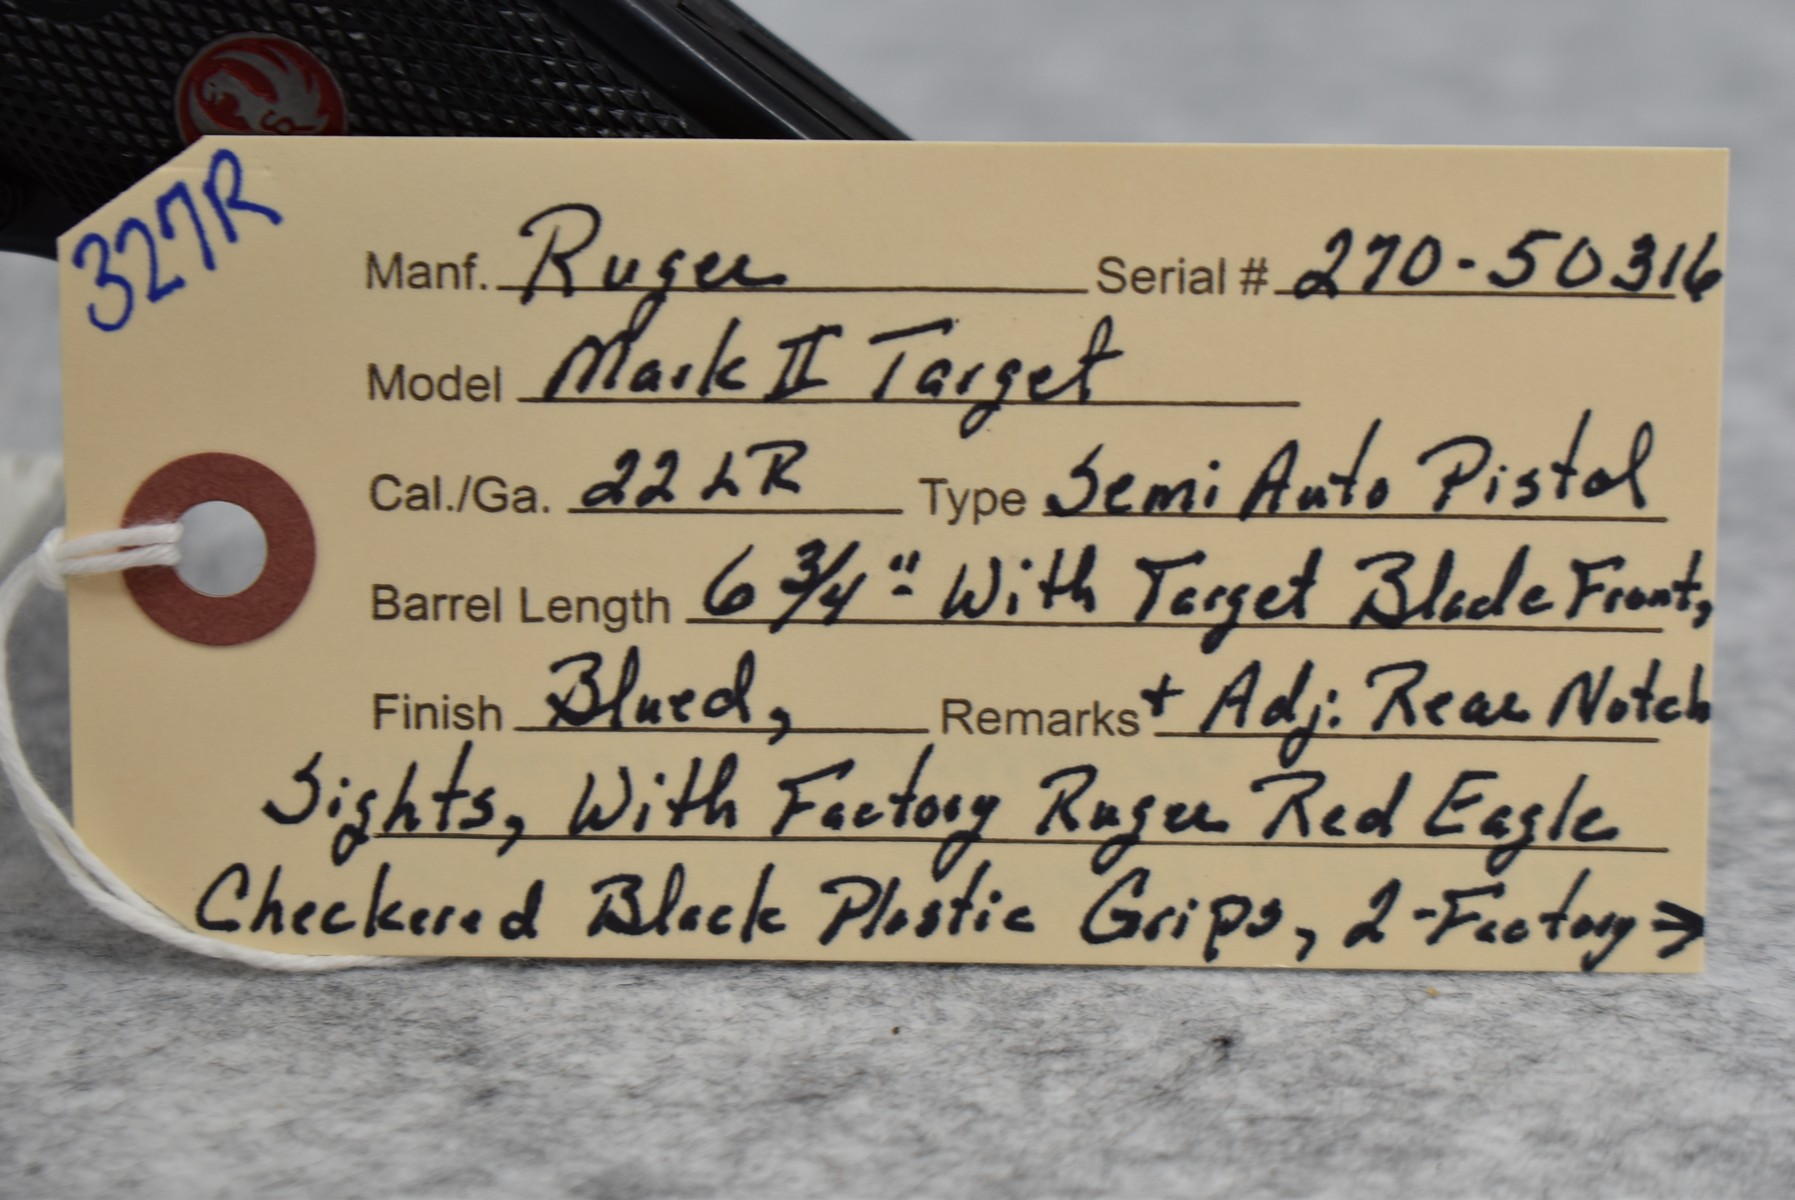 327R
Manf. Ruger Serial # 270-50316
Model Mark II Target
Cal./Ga. 22 LR Type Semi Auto Pistol
Barrel Length 6 3/4" With Target Blade Front,
Finish Blued, Remarks + Adj. Rear Notch
Sights, With Factory Ruger Red Eagle
Checkered Black Plastic Grips, 2-Factory →